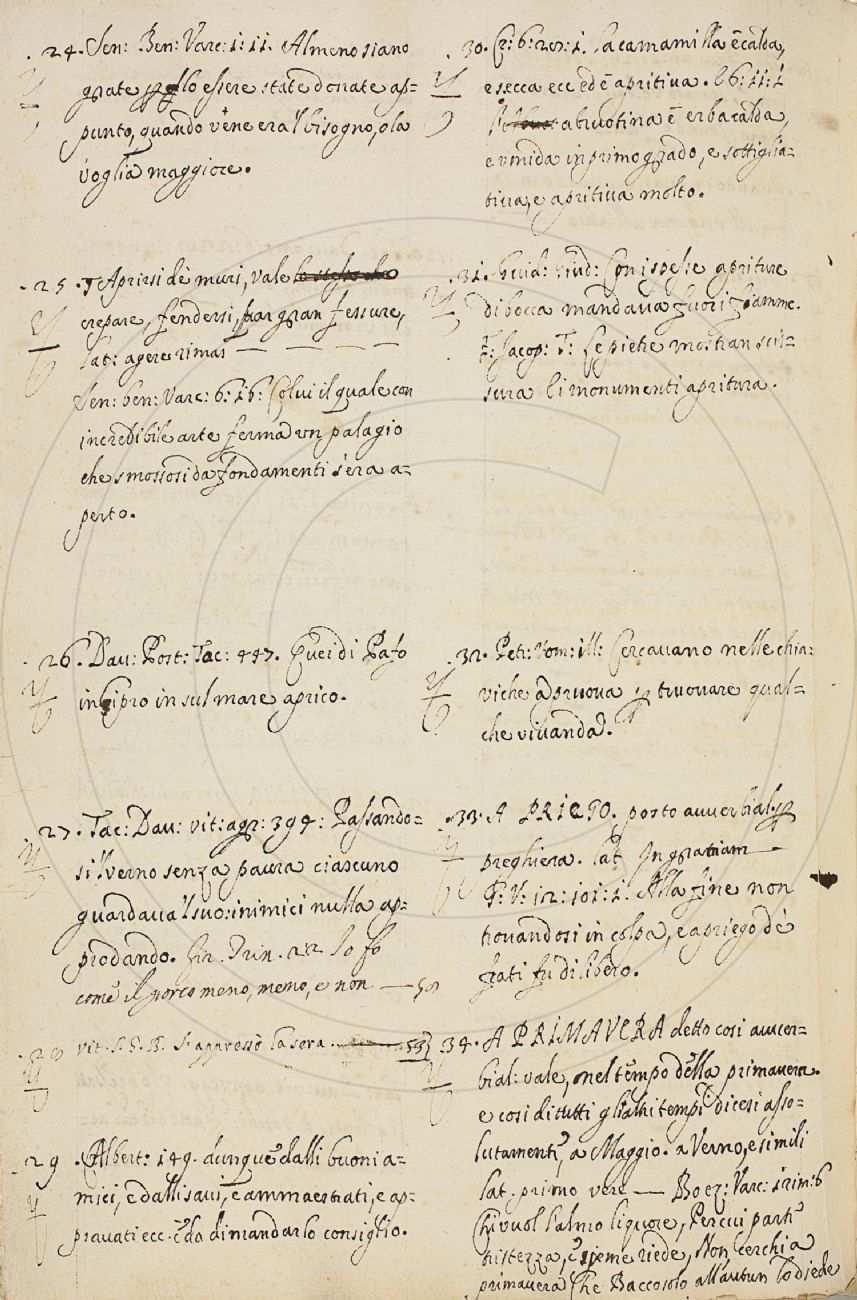 24. Sen: Ben: Varc: 1: 11. Almeno siano
grate p̱ lo essere state donate ap=
punto, quando vène era 'l bisogno, o la
voglia maggiore.
25. Aprirsi de muri, vale
crepare, fendersi, far gran fessure,
lat: agere rimas —
Sen: ben: Varc: 6: 16: Colui il quale con
incredibile arte ferma vn palagio
che smossosi da fondamenti s'era a=
perto.
26. Dau: Post: Tac: 447. Quei di Pafo
in Cipro in sul mare aprico.
27. Tac: Dau: vit: agr: 394: Passando=
si 'l verno senza paura ciascuno
guardaua 'l suo: inimici nulla ap=
prodando. Fir. Trin. 2 2 Io fo
come il porco meno, meno, e non —
28 vit. S. P. si appressò la sera.
29. Albert: 149. dunque dalli buoni a=
mici, e dalli saui, e ammaestrati, e ap=
prouati ecc. è da dimandar lo consiglio.
30. Cr: 6: 20: 1. La camamilla è calda,
e secca ecc ed è apritiua. L 6: 11: 1
abruotina è erba calda,
e vmida in primo grado, e sottiglia=
tiua, e apritiua molto.
31. Guid: Giud: Con ispesse apriture
di bocca mandaua fuori fiamme.
F: Jacop: T: Le pietre mostran scis=
sura li monumenti apritura.
32. Petr: Vom: ill: Cercauano nelle chia=
uiche a pruoua p̱ truouare qual=
che viuanda.
33. A PRIEGO. posto auuerbial: p̱
preghiera. lat In gratiam —
G: V: 12: 101: 1. Alla fine non
trouandosi in colpa, e a priego de
frati fu dilibero.
34. A PRIMAVERA detto cosi auuer=
bial: vale, nel tempo della primauera.
e cosi di tutti gli altri tempi dicesi asso=
lutamente, a Maggio. a Verno, e simili
lat. primo vere — Boez: Varc: 1 rim: 6
Chi vuol l'almo liquore, Per cui parte
tristezza, e speme riede, Non cerchi a
primauera Che Bacco solo all'autun lo diede